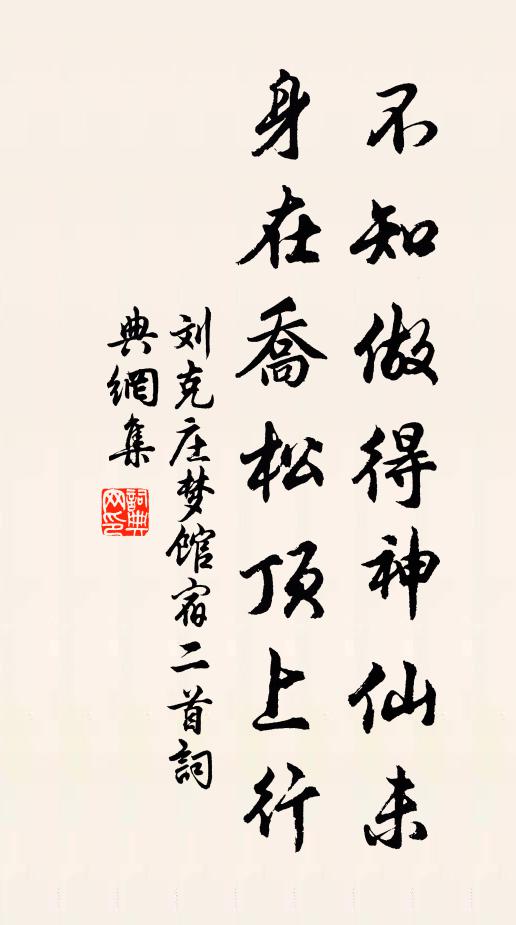 不知做得神仙未
身在喬松顶上行
刘克庄梦馆宿二首詞
典網集
詞典网印